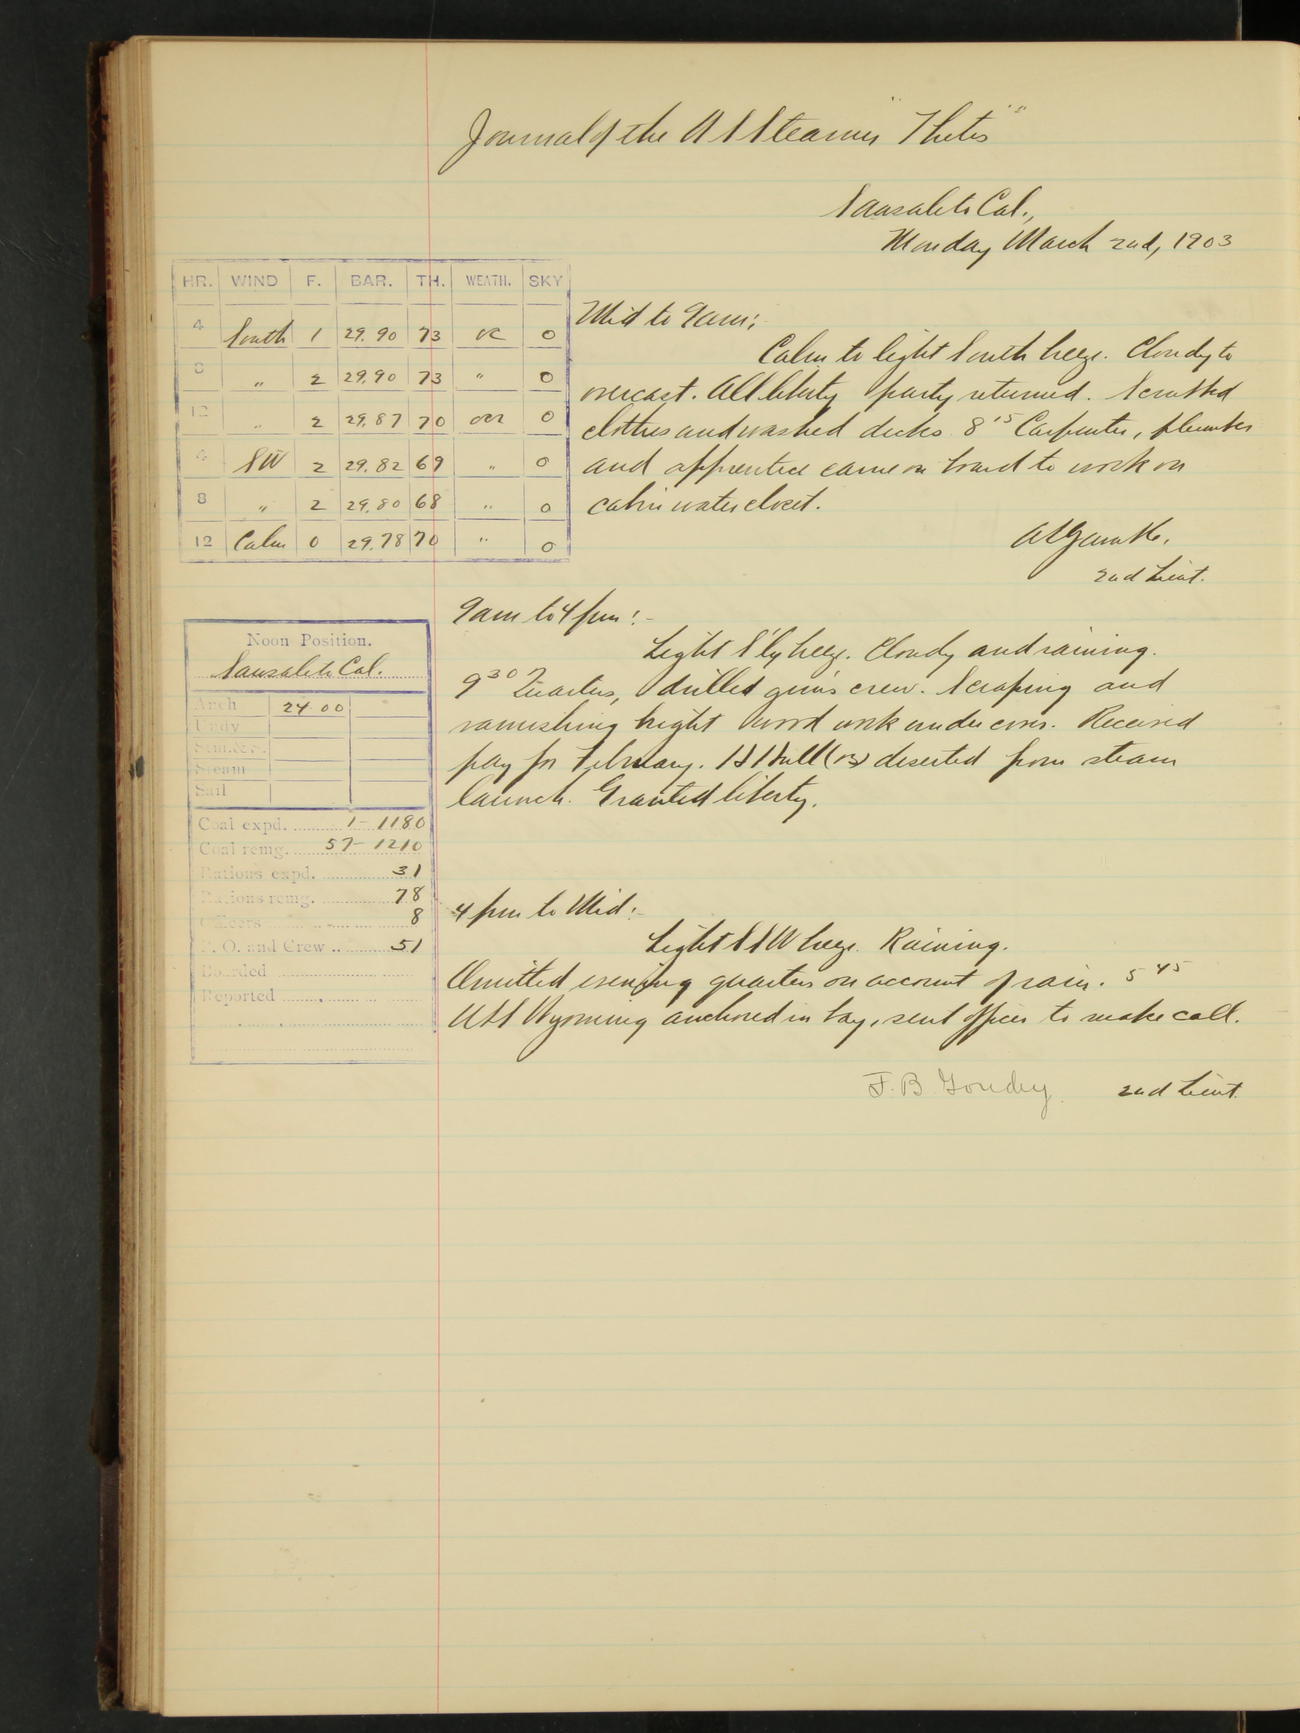 Journal of the U S Steamer "Thetis"
Sausalito Cal.,
Monday March 2nd, 1903
HR. WIND F. BAR. TH. WEATH. SKY
4 South 1 29.90 73 oc 0
8 " 2 29.90 73 " 0
12 " 2 29.87 70 ocr 0
4 SW 2 29.82 69 " 0
8 " 2 29.80 68 " 0
12 Calm 0 29.78 70 " 0
Mid to 9am:
Calm to light South breeze. Cloudy to
overcast. All liberty party returned. Scrubbed
clothes and washed decks 8 15 Carpenter, plumber
and apprentice came on board to work on
cabin water closet.
2nd Lieut.
9am to 4 pm:-
Light S'ly breeze. Cloudy and raining.
9 30 Quarters, drilled guns crew. Scraping and
varnishing bright wood work under cover. Received
pay for February. Hull deserted from steam
launch. Granted liberty.
4 pm to Mid:-
Light SSW breeze. Raining.
Omitted evening quarters on account of rain. 5 45
USS Wyoming anchored in bay, sent officer to make call.
F. B. Goudey 2nd Lieut.
Noon Position.
Sausalito Cal.
Anch 24 00
Undy
Stm. & S.
Steam
Sail
Coal expd. 1 - 1180
Coal remg. 57 - 1210
Rations expd. 31
Rations remg. 78
Officers 8
P. O. and Crew 51
Boarded
Reported